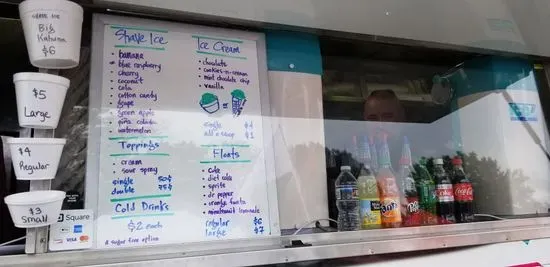 SHAVE ICE
Big
Kahuna
$6
$5
Large
$4
Regular
$3
Small
Square
VISA
Shave Ice
• banana
• blue raspberry
• cherry
• coconut
• cola
• cotton candy
• grape
• green apple
• piña colada
• watermelon
Toppings
• cream
• sour spray
single 50¢
double 75¢
Cold Drinks
$2 each
* sugar free option
Ice Cream
• chocolate
• cookies-n-cream
• mint chocolate chip
• vanilla
or
single $4
add a scoop $1
Floats
• coke
• diet coke
• sprite
• dr pepper
• orange fanta
• minutemaid lemonade
regular $6
large $7